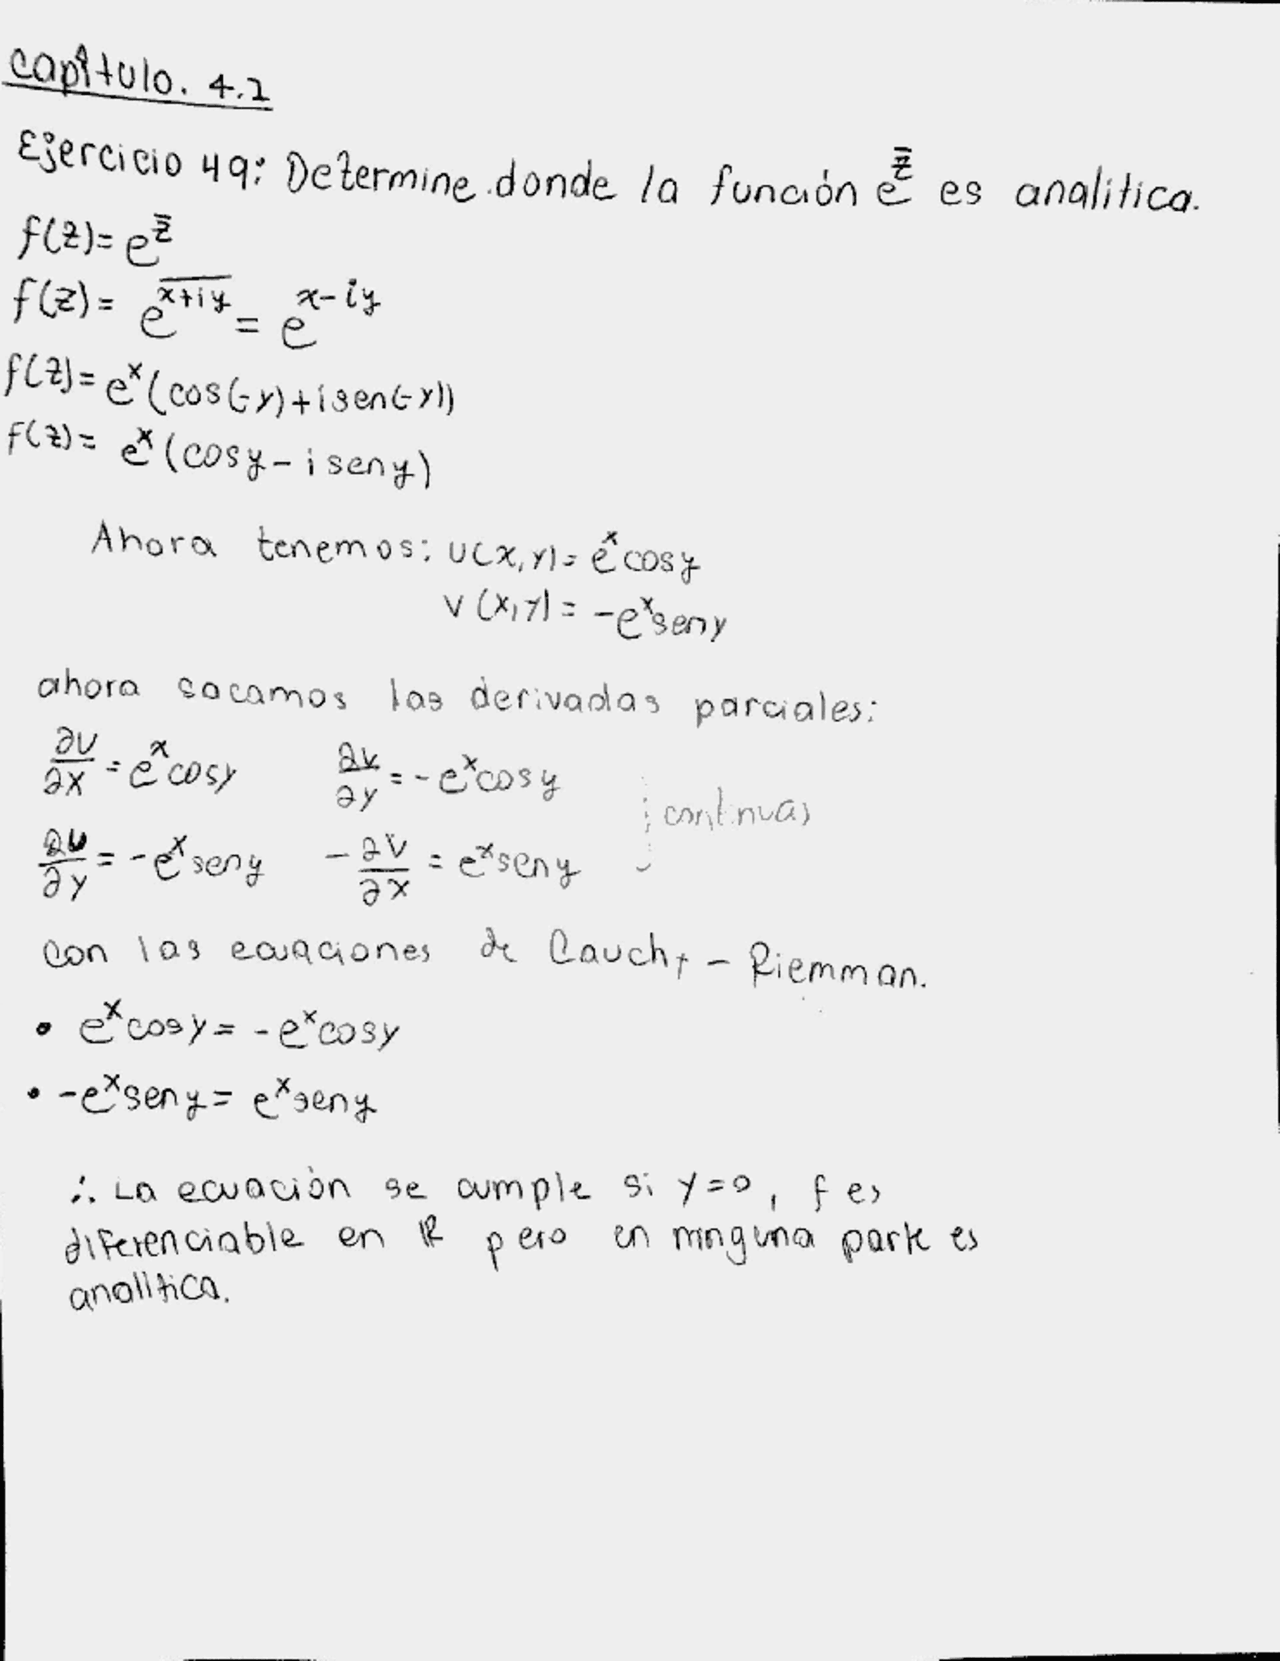 capítulo. 4.1
Ejercicio 49: Determine donde la función e^z̄ es analitica.
f(z)= e^z̄
f(z)= e^\overline{x+iy} = e^{x-iy}
f(z)= e^x(cos(-y)+isen(-y))
f(z)= e^x(cosy-iseny)
Ahora tenemos: u(x,y)= e^x cosy
v(x,y)= -e^x seny
ahora sacamos las derivadas parciales:
∂u/∂x = e^x cosy ∂v/∂y = -e^x cosy
; continuas
∂u/∂y = -e^x seny -∂v/∂x = e^x seny
con las ecuaciones de Cauchy - Riemman.
• e^x cosy = -e^x cosy
• -e^x seny = e^x seny
∴ La ecuación se cumple si y=0, f es
diferenciable en ℝ pero en ninguna parte es
analítica.